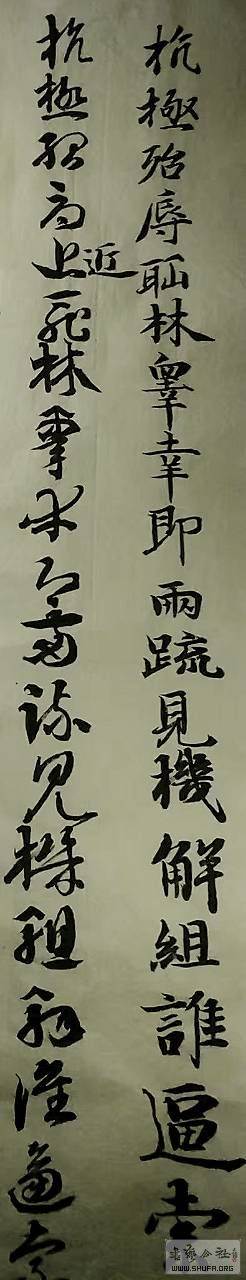 抗極殆辱近恥林皋幸即兩疏見機解組誰逼索
抗極殆辱近恥林皋幸即兩疏見機組解誰逼索
书艺公社
WWW.SHUFA.ORG